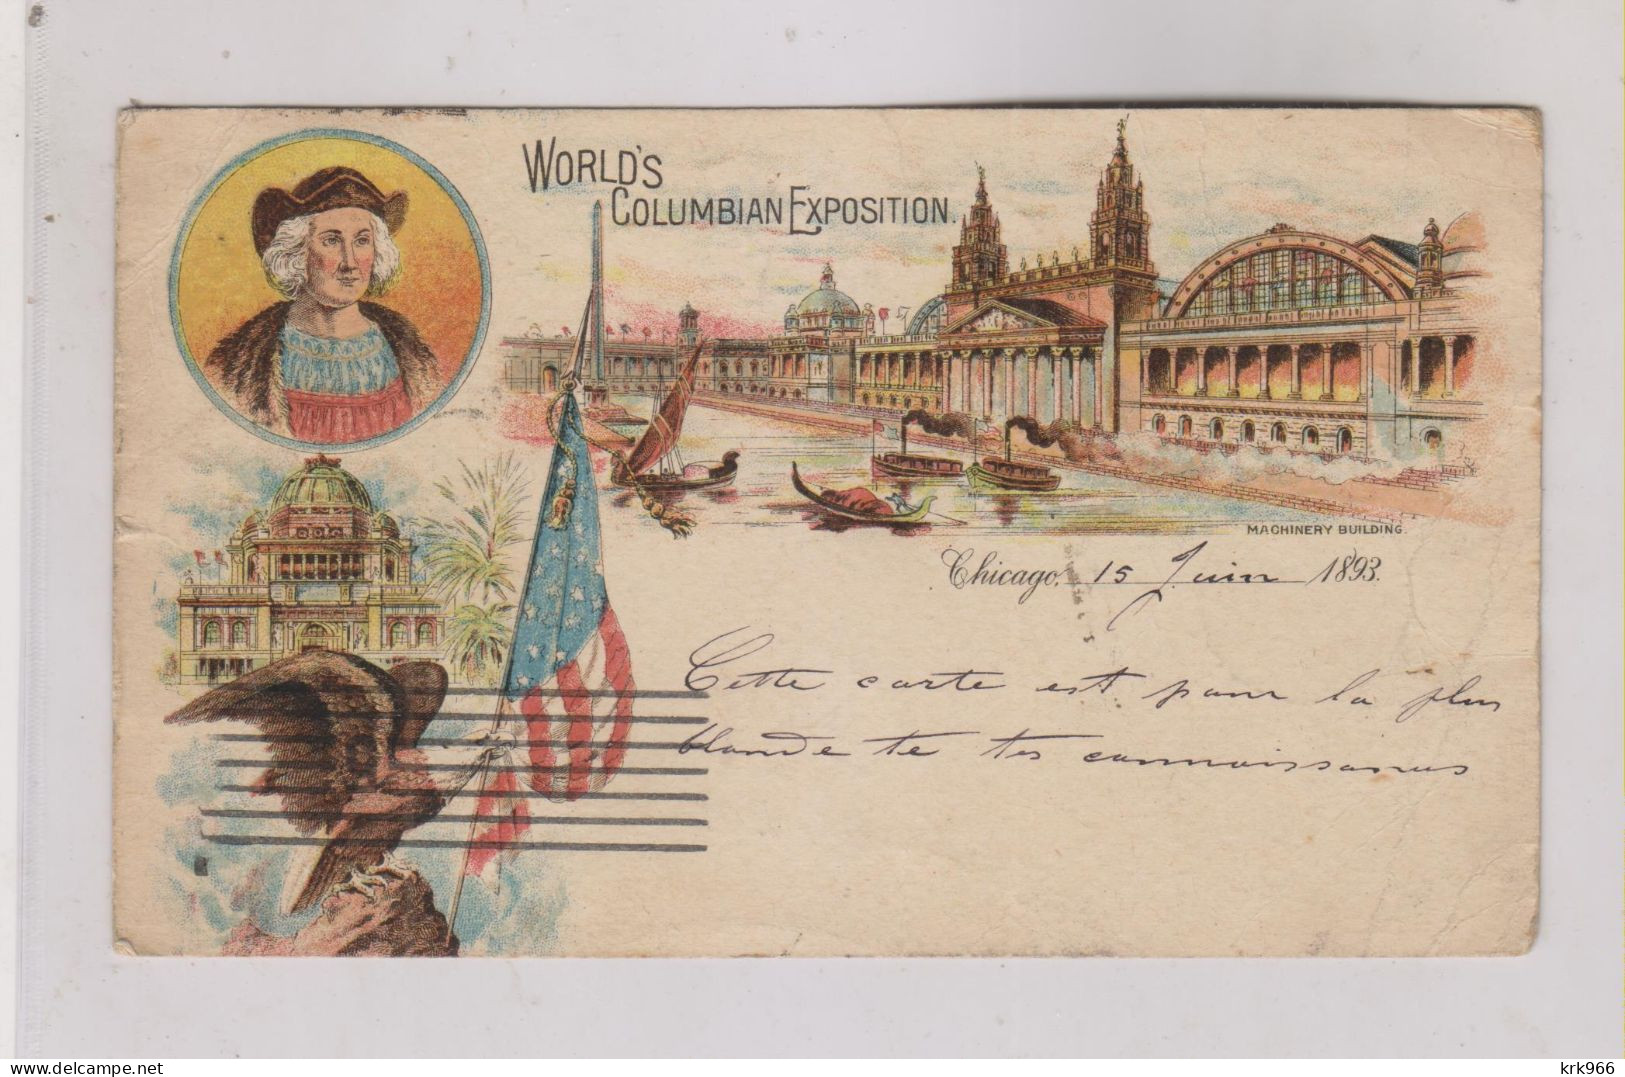 WORLD'S
COLUMBIAN EXPOSITION.
MACHINERY BUILDING.
Chicago, 15 Juin 1893.
Cette carte est pour la plus
blonde de tes connaissances
krk966